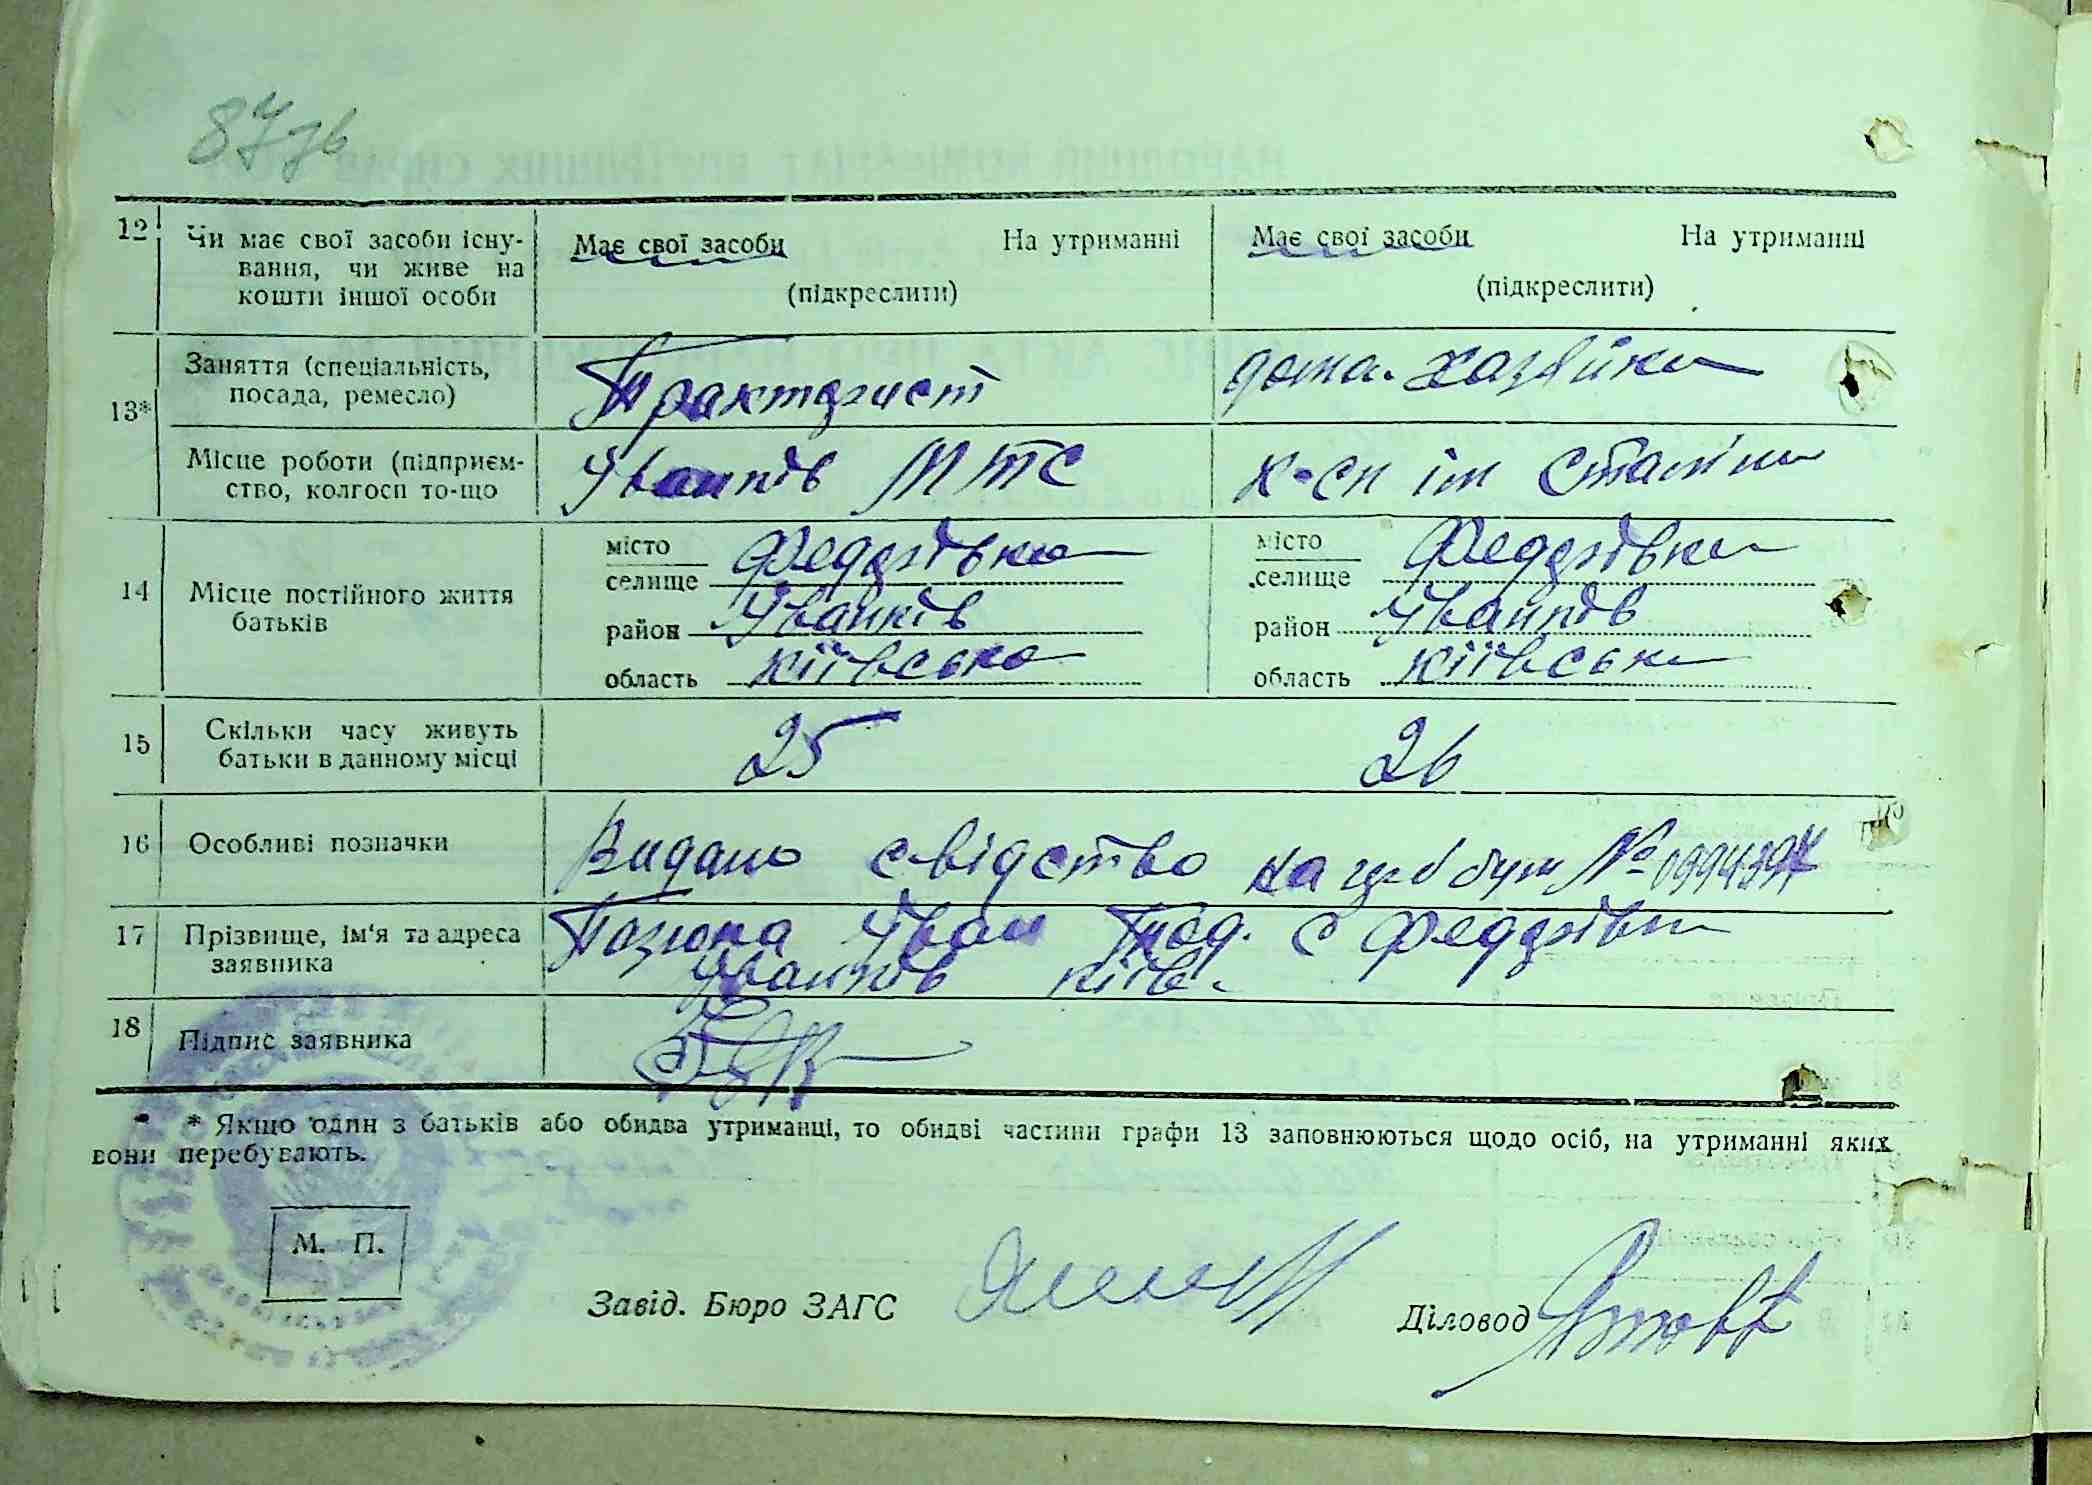 87зв
12 Чи має свої засоби існу- Має свої засоби На утриманні Має свої засоби На утриманні
вання, чи живе на
кошти іншої особи (підкреслити) (підкреслити)
13* Заняття (спеціальність, Тракторист дома. хазяйка
посада, ремесло)
Місце роботи (підприєм- Іванків МТС к-сп ім Сталіна
ство, колгосп то-що
14 Місце постійного життя
батьків
місто Федорівка місто Федорівка
селище селище
район Іванків район Іванків
область Київська область Київська
15 Скільки часу живуть 25 26
батьки в данному місці
16 Особливі позначки Видано свідство на №
17 Прізвище, ім'я та адреса Іван с Федорівка
заявника Іванків Київ.
18 Підпис заявника
* Якщо один з батьків або обидва утриманці, то обидві частини графи 13 заповнюються щодо осіб, на утриманні яких
вони перебувають.
М. П.
Завід. Бюро ЗАГС
Діловод